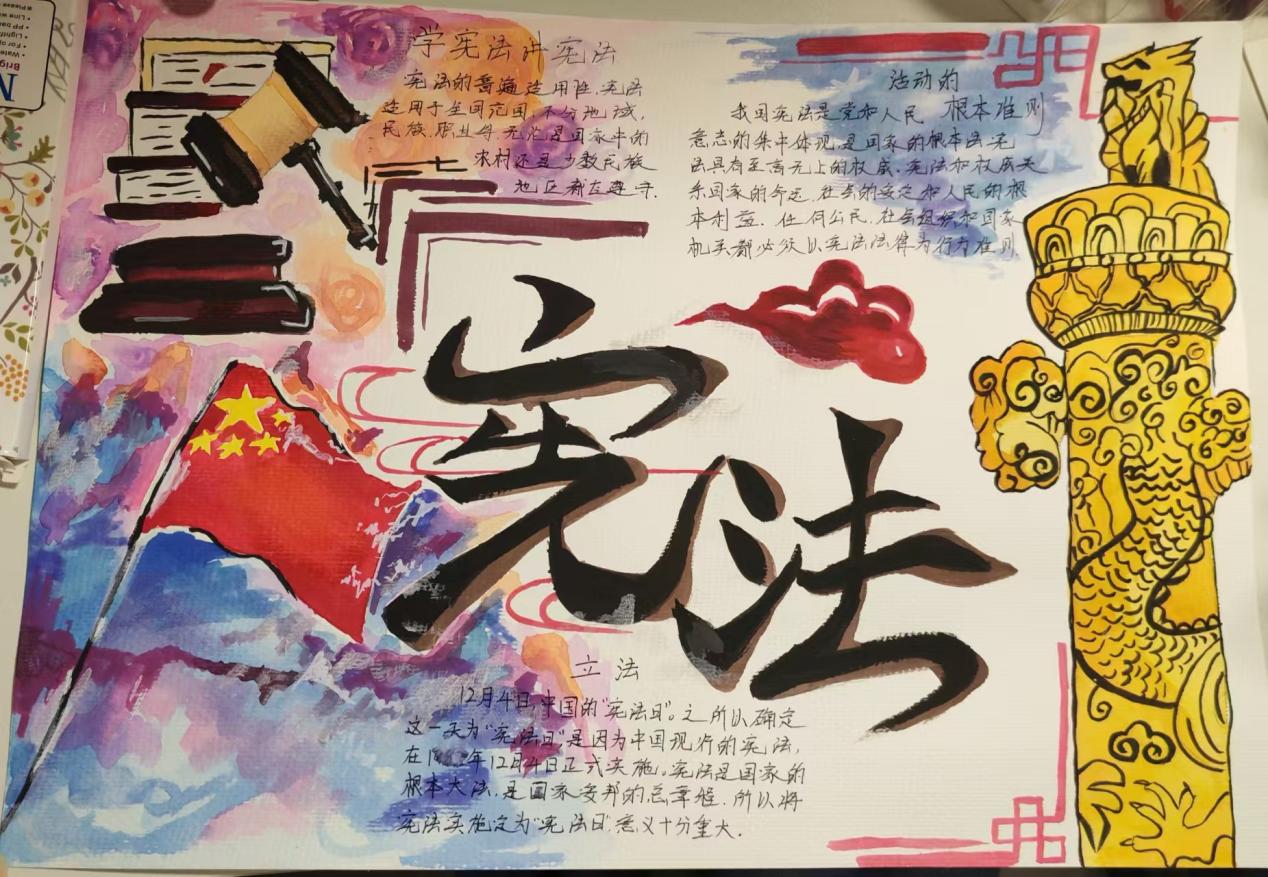 学宪法讲宪法
宪法的普遍适用性,宪法
适用于全国范围,不分地域,
民族、职业等,无论是国家中的
农村还是少数民族
地区都在遵守.
活动的
根本准则
我国宪法是党和人民
意志的集中体现,是国家的根本法,宪
法具有至高无上的权威.宪法和权威关
系国家的命运,社会的安定和人民的根
本利益.任何公民,社会组织和国家
机关都必须以宪法法律为行为准则
宪法
立法
12月4日,中国的“宪法日”。之所以确定
这一天为“宪法日”,是因为中国现行的宪法,
在1年12月4日正式实施。宪法是国家的
根本大法,是国家安邦的总章程.所以将
宪法实施定为“宪法日”,意义十分重大.